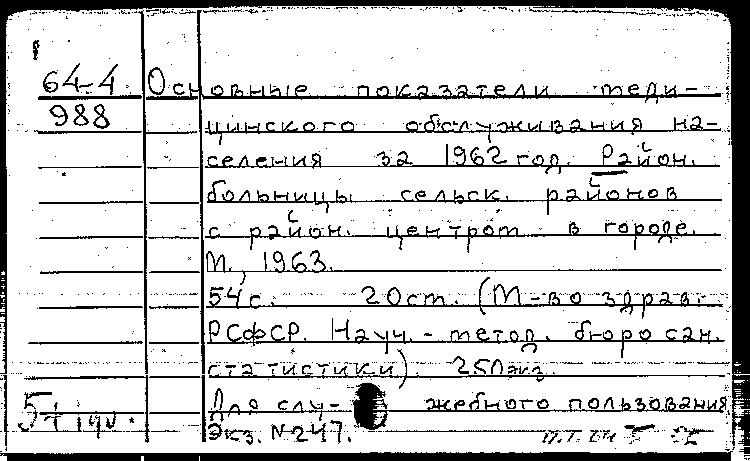 64-4 Основные показатели меди-
988
цинского обслуживания на-
селения за 1962 год. Район.
больницы сельск. районов
с район. центром в городе.
М., 1963.
54 с. 20 см. (М-во здрав.
РСФСР. Науч.-метод. бюро сан.
статистики). 250 экз.
Для слу- жебного пользования
Экз. №247.